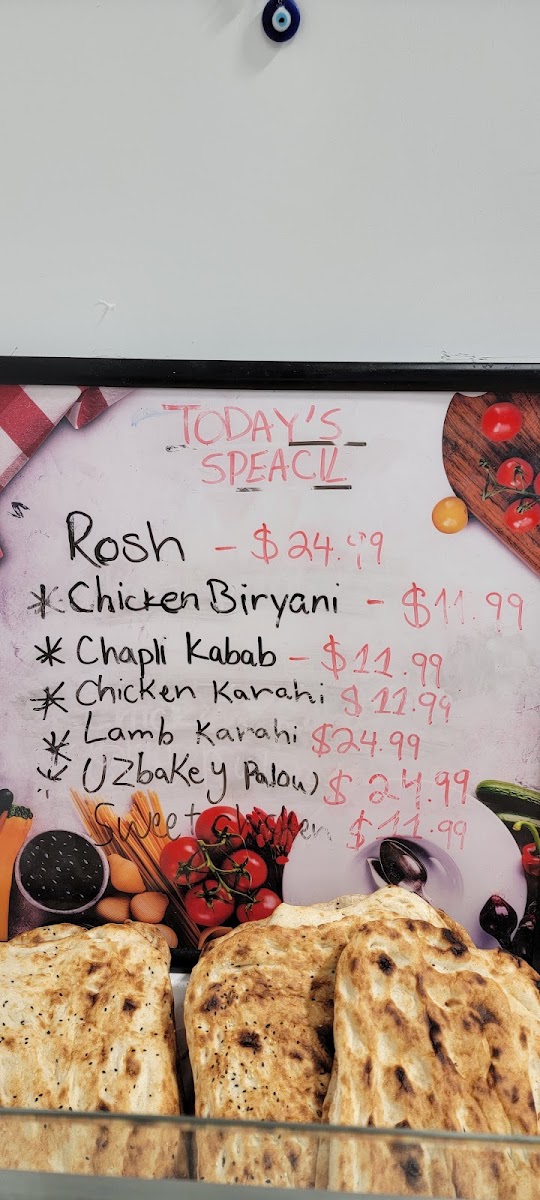 TODAY'S
SPEACIL
Rosh - $24.99
* Chicken Biryani - $11.99
* Chapli Kabab - $11.99
* Chicken Karahi $11.99
* Lamb Karahi $24.99
* Uzbakey Palow $24.99
Sweet chicken $11.99